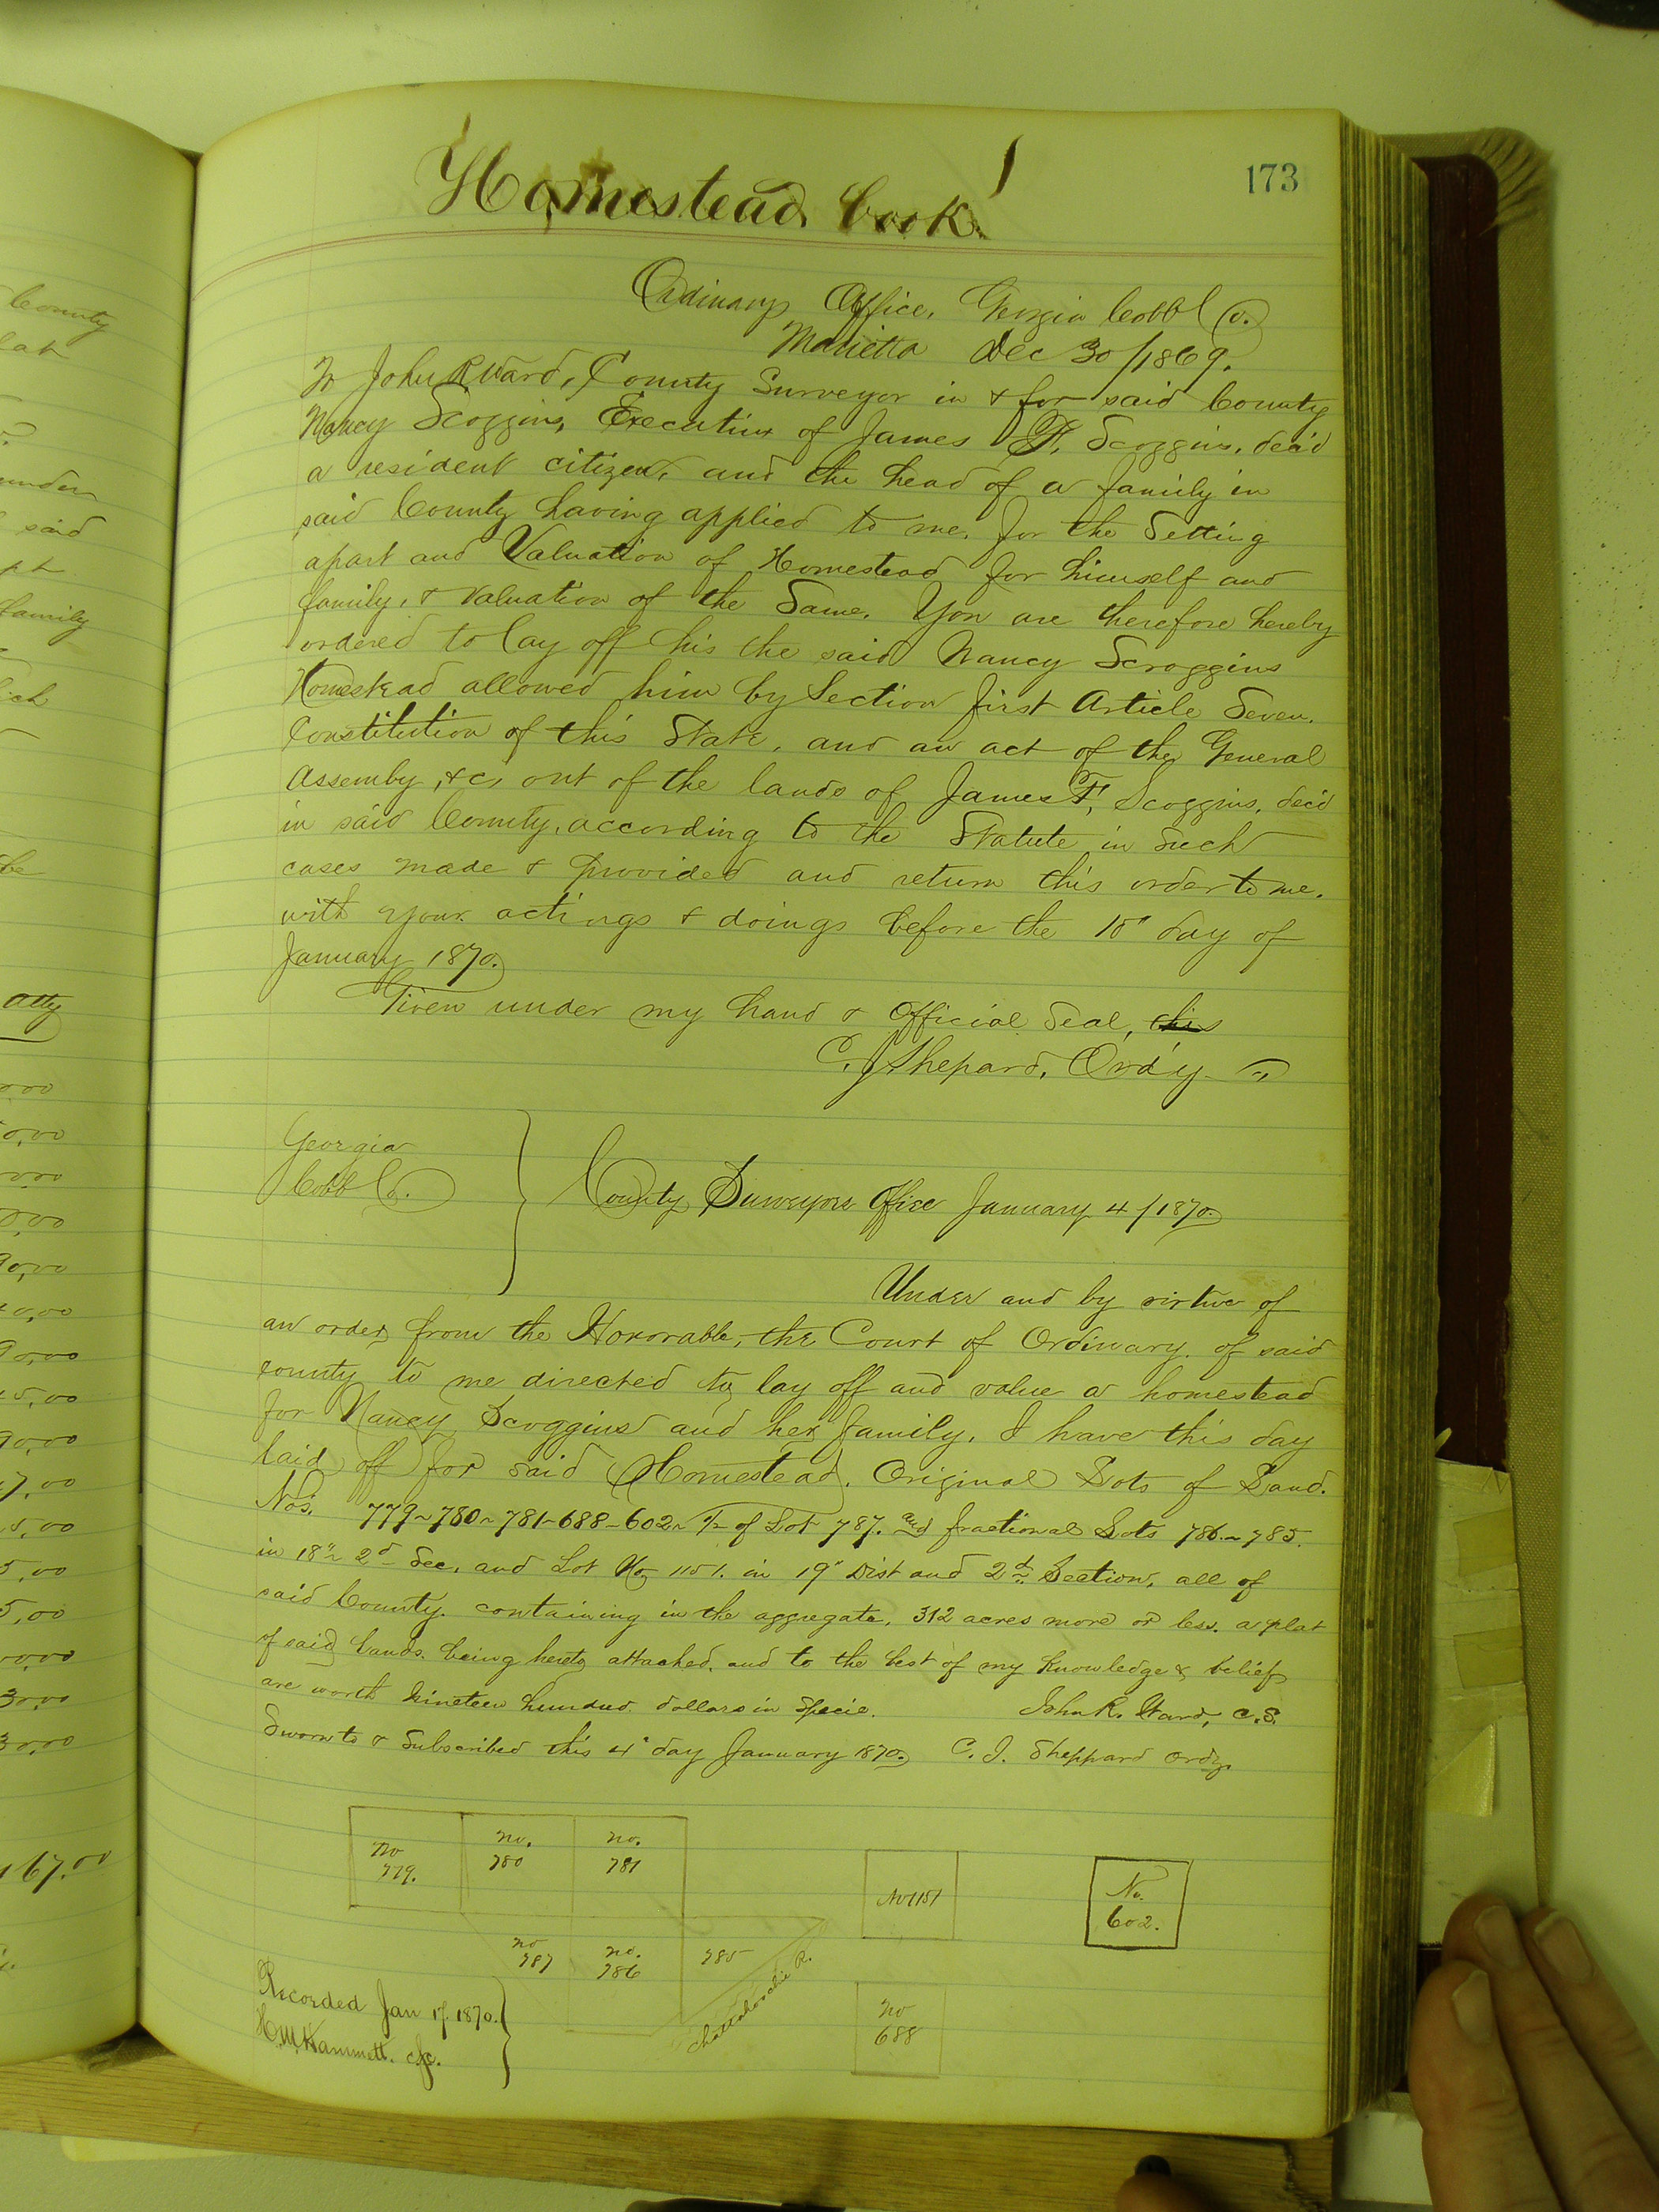 173
Homestead book
Ordinarys Office, Georgia Cobb Co.
Marietta Dec 30/1869.
To John R Ward, County Surveyor in & for said County
Nancy Scoggins, Executrix of James F. Scoggins, dec'd
a resident citizen, and the head of a family in
said County having applied to me, for the Setting
apart and Valuation of Homestead for himself and
family, & valuation of the Same. You are therefore hereby
ordered to lay off his the said Nancy Scroggins
Homestead allowed him by Section first Article Seven.
Constitution of this State, and an act of the General
Assemby, &c, out of the lands of James F, Scoggins, dec'd
in said County, according to the Statute in Such
cases made & provided and return this order to me.
with your actings & doings before the 15" day of
January 1870.
Given under my hand & Official Seal, this
C. J Shepard, Ord'y
Georgia
Cobb Co.
County Surveyors Office January 4/1870.
Under and by virtue of
an order from the Honorable, the Court of Ordinary, of said
county to me directed to lay off and value a homestead
for Nancy Scoggins and her family, I have this day
laid off for said Homestead. Original Lots of Land.
Nos. 779~780~781-688-602~ ½ of Lot 787. and fractional Lots 786.~785.
in 18" 2d Sec, and Lot No 1151. in 19" Dist and 2d Section, all of
said County. containing in the aggregate, 312 acres more or less. a plat
of said lands. being hereto attached, and to the best of my knowledge & belief
are worth Nineteen hundred dollars in Specie. John R. Ward, C.S.
Sworn to & Subscribed this 4" day January 1870. C. J. Sheppard Ordy.
No 779.
No. 780
No. 781
No 1151
No. 602.
No 787
No. 786
785
Chattahoochie R.
No 688
Recorded Jan 17. 1870.
H. M Hammett. clk.
County
under
said
family
atty
167.00